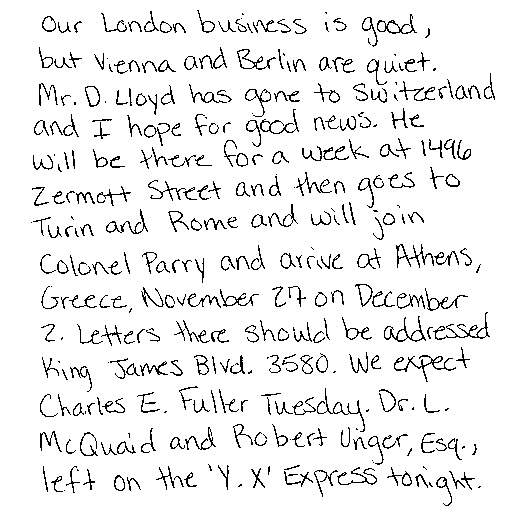 Our London business is good,
but Vienna and Berlin are quiet.
Mr. D. Lloyd has gone to Switzerland
and I hope for good news. He
will be there for a week at 1496
Zermott Street and then goes to
Turin and Rome and will join
Colonel Parry and arrive at Athens,
Greece, November 27 on December
2. Letters there should be addressed
King James Blvd. 3580. We expect
Charles E. Fuller Tuesday. Dr. L.
McQuaid and Robert Unger, Esq.,
left on the 'Y. X' Express tonight.